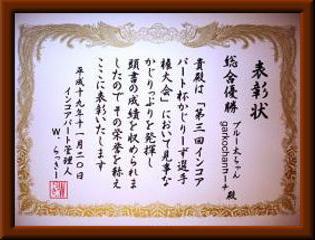 表彰状
総合優勝
ブルー太ちゃん
garkochanコーチ 殿
貴殿は「第三回インコア
パート杯かじりーず選手
権大会」において見事な
かじりっぷりを発揮し
頭書の成績を収められま
したのでその栄誉を称え
ここに表彰いたします
平成十九年十一月二〇日
インコアパート管理人
W.らっきー